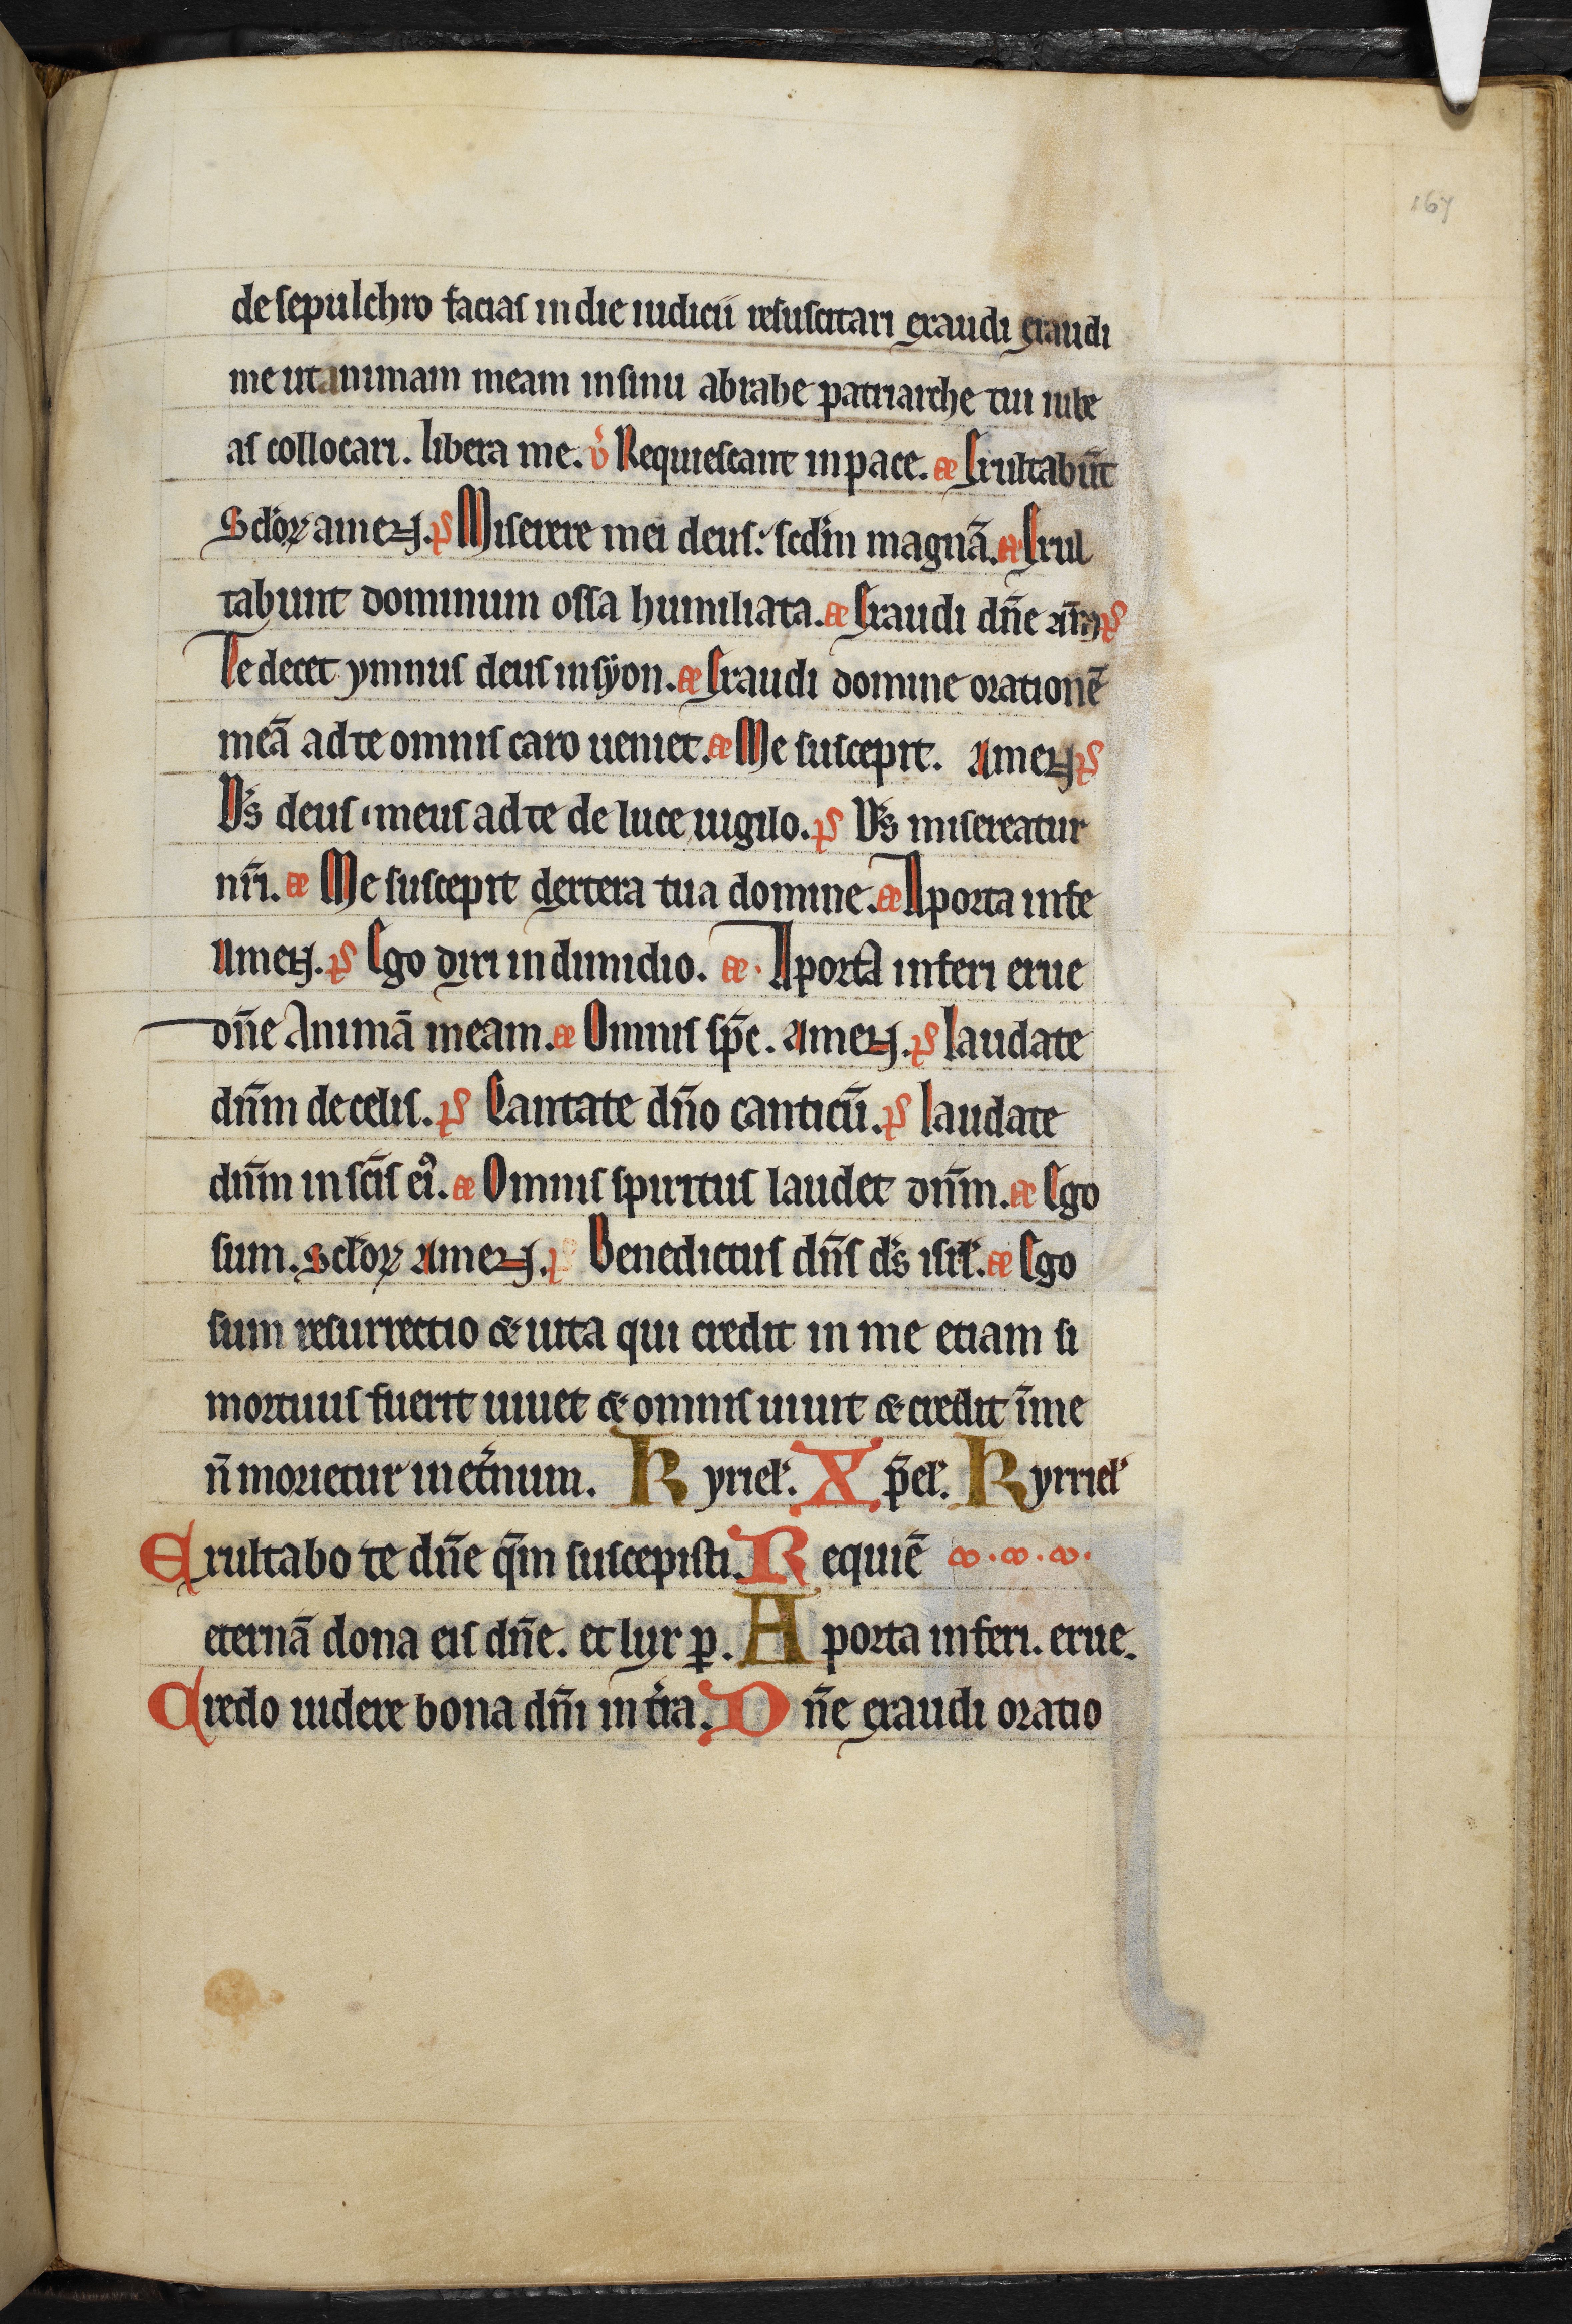 167
de sepulchro facias in die iudicii resuscitari exaudi exaudi
me ut animam meam in sinu abrahe patriarche tui iube
as collocari. libera me. v̉ Requiescant in pace. æ Exultabūt
Sclo̅ꝝ amen. p̅s Miserere mei deus: scd̅m magnā. æ Exul
tabunt dominum ossa humiliata. æ Exaudi dn̅e am̅ p̅s
Te decet ymnus deus in syon. æ Exaudi domine orationē
meā ad te omnis caro ueniet. æ Me suscepit. Amen p̅s
D̅s deus meus ad te de luce uigilo. p̅s D̅s misereatur
nr̅i. æ Me suscepit dextera tua domine. æ A porta infe
Amen. p̅s Ego dixi in dimidio. æ. A porta inferi erue
dn̅e Animā meam. æ Omnis sp̅c. Amen. p̅s laudate
dn̅m de celis. p̅s Cantate dn̅o canticū. p̅s laudate
dn̅m in sc̅is ei᾽. æ Omnis spiritus laudet dn̅m. æ Ego
sum. Sclo̅ꝝ Amen. p̅s Benedictus dn̅s d̅s isrl̅. æ Ego
sum resurrectio & uita qui credit in me etiam si
mortuus fuerit uiuet & omnis uiuit & credit ī me
n̅ morietur in et̅num. Kyriel̅. Xp̅el̅. Kyrriel̅
Exultabo te dn̅e qm̅ suscepisti. Requiē
eternā dona eis dn̅e. et lux ꝑ. A porta inferi. erue.
Credo uidere bona dn̅i in t̅ra. Dn̅e exaudi oratio